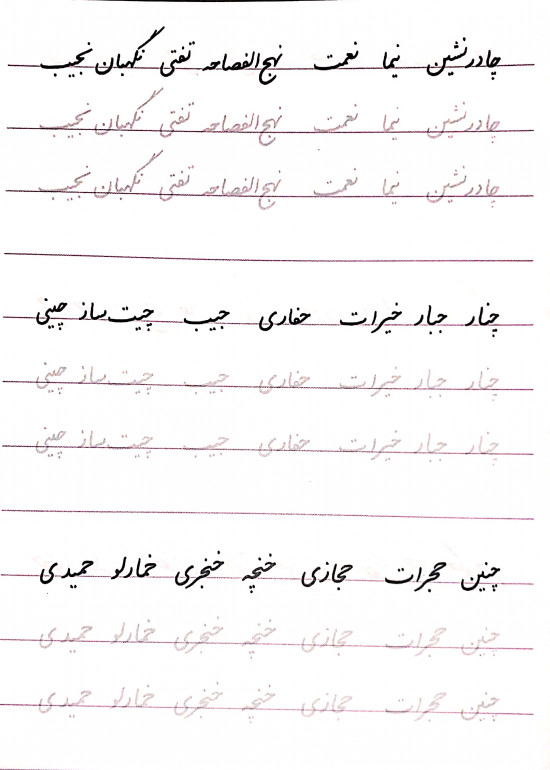 چادرنشین نیما نعمت نهج‌الفصاحه نفتی نگهبان نجیب
چادرنشین نیما نعمت نهج‌الفصاحه نفتی نگهبان نجیب
چادرنشین نیما نعمت نهج‌الفصاحه نفتی نگهبان نجیب
چنار جبار خیرات حفاری جیب چیت‌ساز چینی
چنار جبار خیرات حفاری جیب چیت‌ساز چینی
چنار جبار خیرات حفاری جیب چیت‌ساز چینی
چنین حجرات حجازی خنچه خنجری خمارلو حمیدی
چنین حجرات حجازی خنچه خنجری خمارلو حمیدی
چنین حجرات حجازی خنچه خنجری خمارلو حمیدی